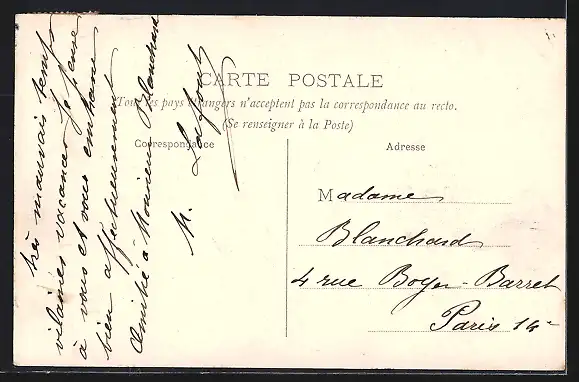 CARTE POSTALE
Tous les pays étrangers n'acceptent pas la correspondance au recto.
(Se renseigner à la Poste)
Correspondance
Adresse
très mauvais temps
vilaines vacances Je pense
à vous et vous embrasse
bien affectueusement
Amitié à Monsieur Blanchard
M. Lafont
Madame
Blanchard
4 rue Boyer-Barret
Paris 14e